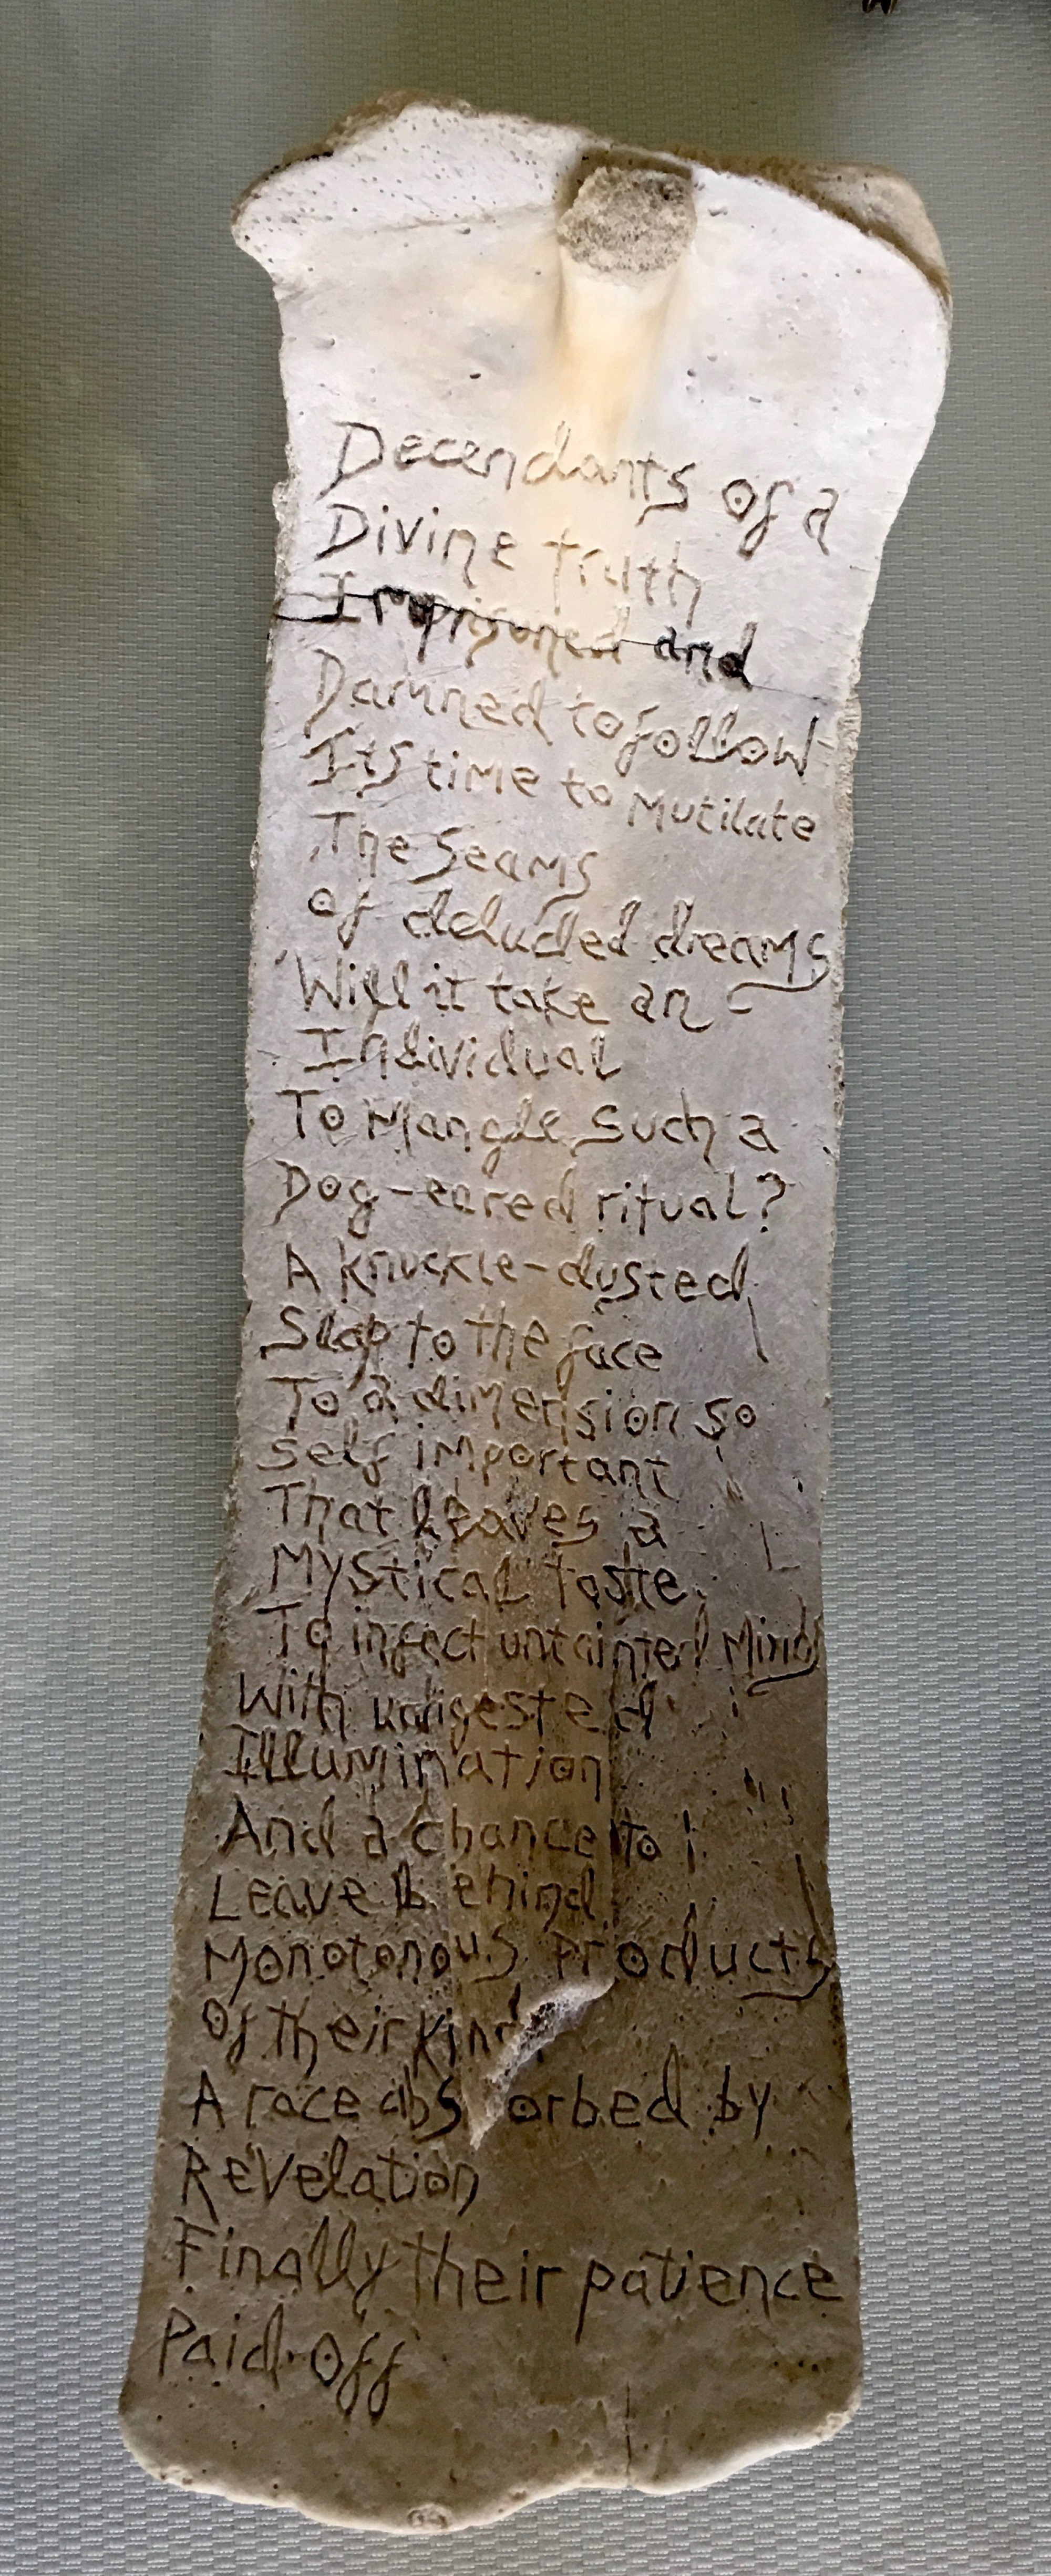 Decendants of a
Divine truth
Imprisoned and
Damned to follow
Its time to Mutilate
The Seams
of deluded dreams
Will it take an
Individual
To Mangle Such a
Dog-eared ritual?
A knuckle-dusted
Slap to the face
To a dimension so
self important
That leaves a
Mystical taste
To infect untainted Minds
With undigested
Illumination
And a chance to
Leave behind
Monotonous products
Of their kind
A race absorbed by
Revelation
Finally their patience
Paid-off